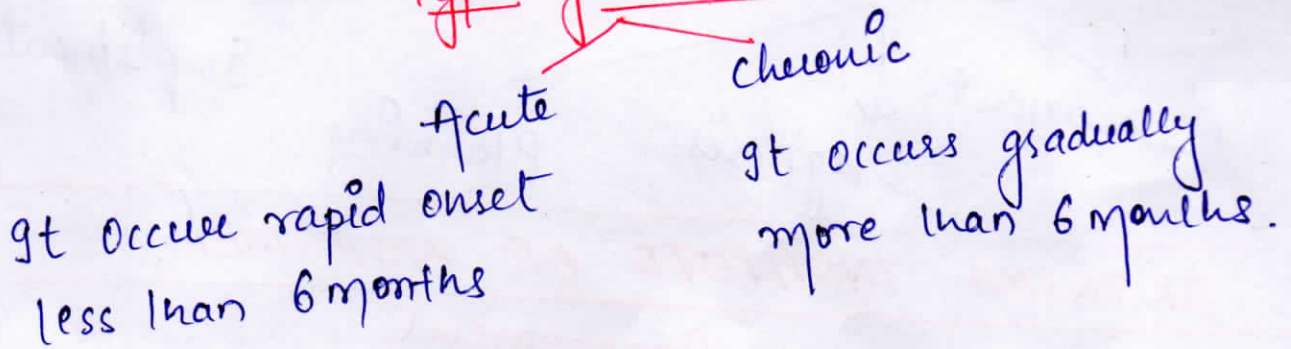 Acute
It occure rapid onset
less than 6 months
Chronic
It occurs gradually
more than 6 months.